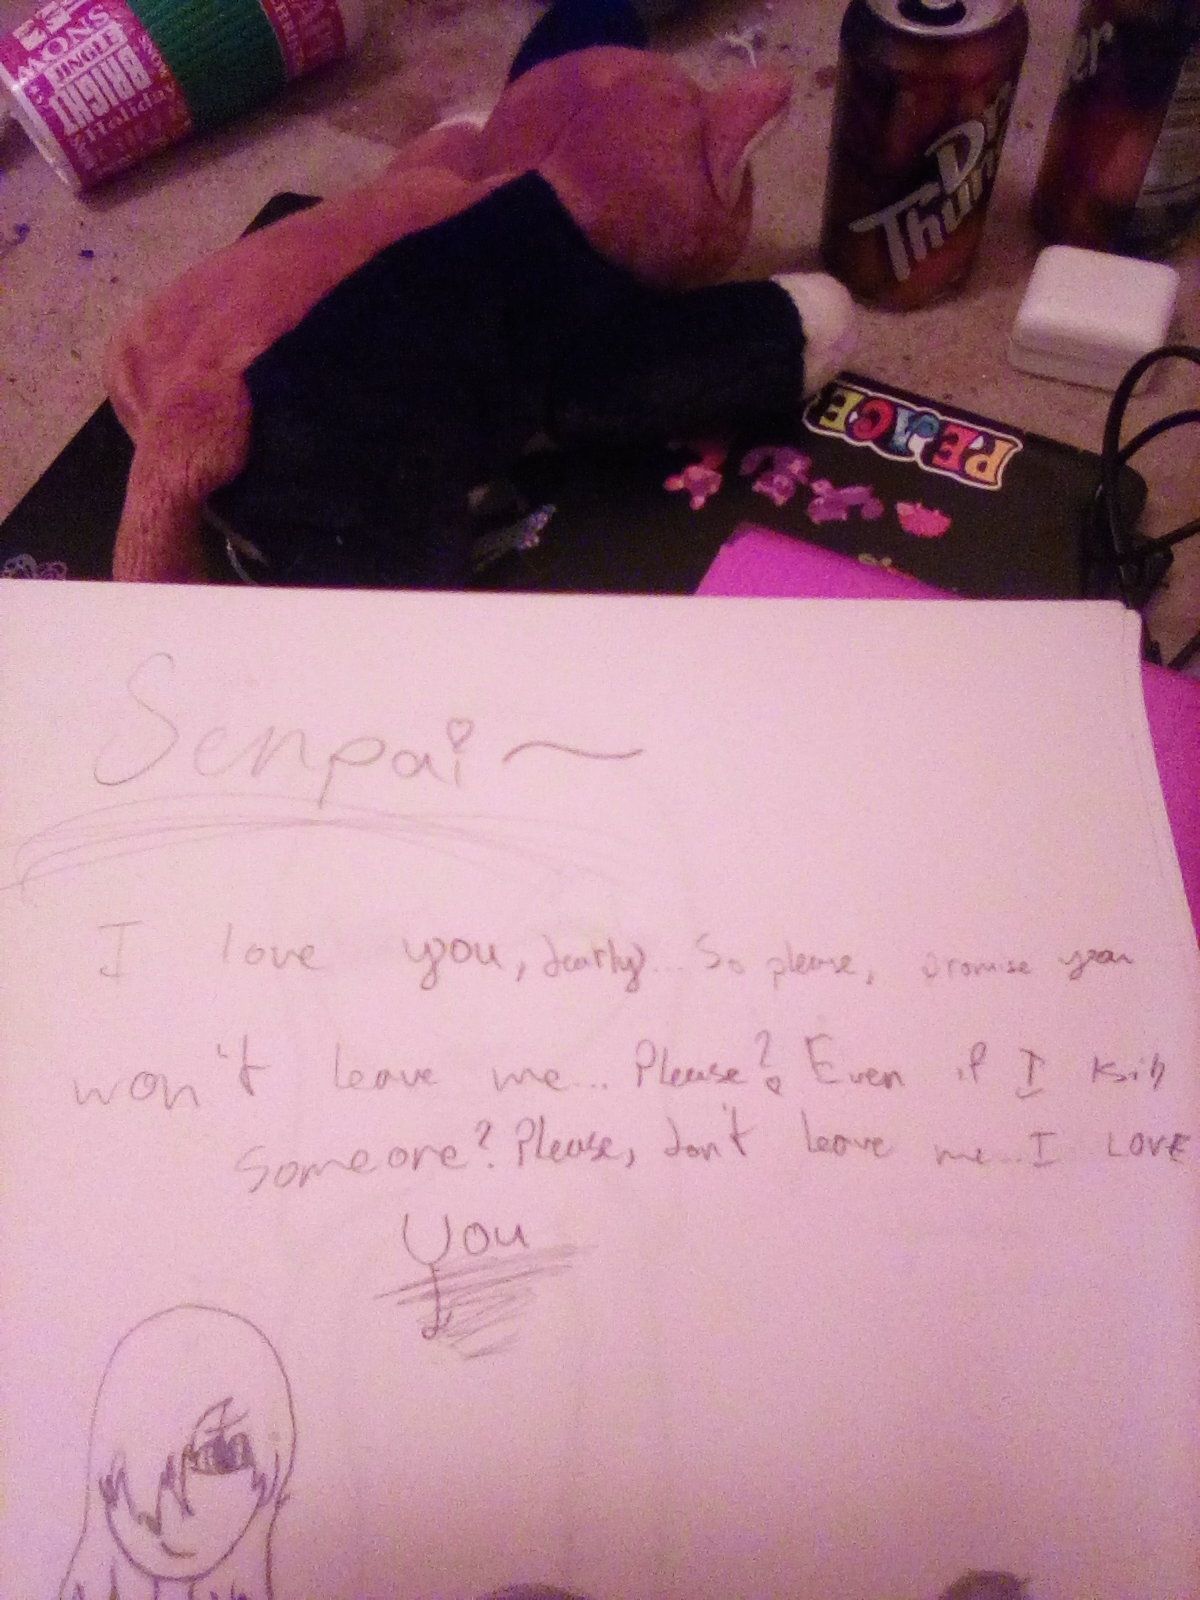 SNOW
JINGLE
BRIGHT
Holiday
Dr
Thun
er
PEACE
Senpai ~
I love you, dearly... So please, promise you
won't leave me... Please? Even if I
someone? Please, don't leave me... I LOVE
You